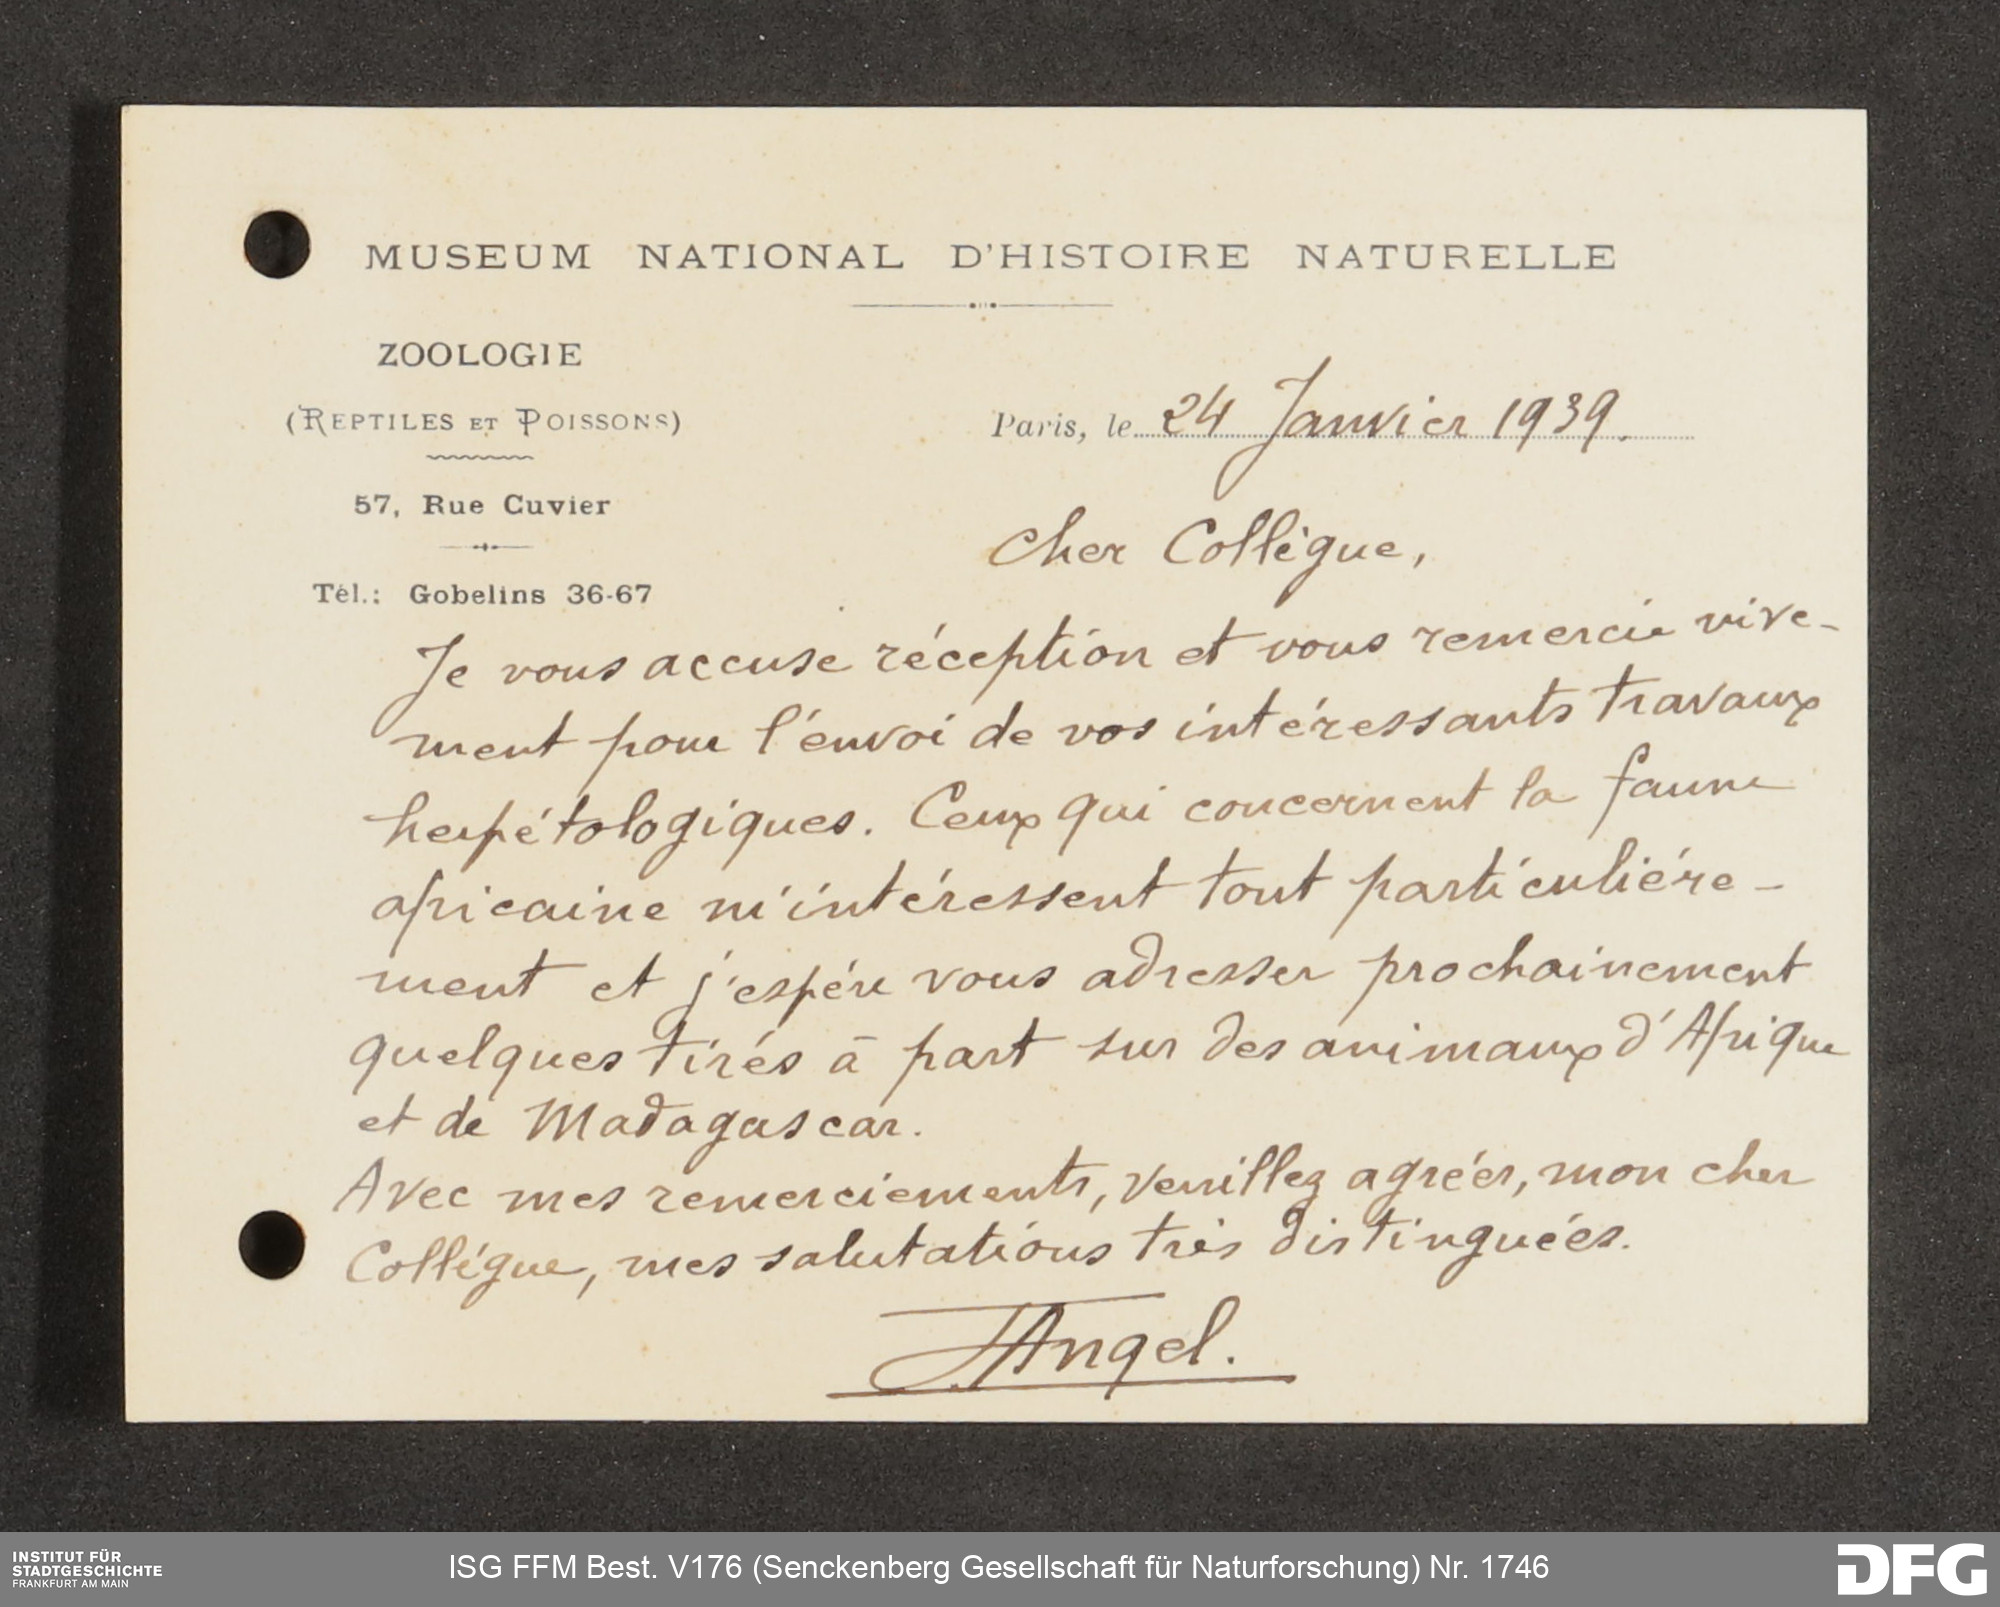 MUSEUM NATIONAL D'HISTOIRE NATURELLE
ZOOLOGIE
(REPTILES ET POISSONS)
57, Rue Cuvier
Tél.: Gobelins 36-67
Paris, le 24 Janvier 1939.
Cher Collègue,
Je vous accuse réception et vous remercie vive-
ment pour l'envoi de vos intéressants travaux
herpétologiques. Ceux qui concernent la faune
africaine m'intéressent tout particulière-
ment et j'espère vous adresser prochainement
quelques tirés à part sur des animaux d'Afrique
et de Madagascar.
Avec mes remerciements, veuillez agréer, mon cher
Collègue, mes salutations très distinguées.
FAngel.
INSTITUT FÜR
STADTGESCHICHTE
FRANKFURT AM MAIN
ISG FFM Best. V176 (Senckenberg Gesellschaft für Naturforschung) Nr. 1746
DFG